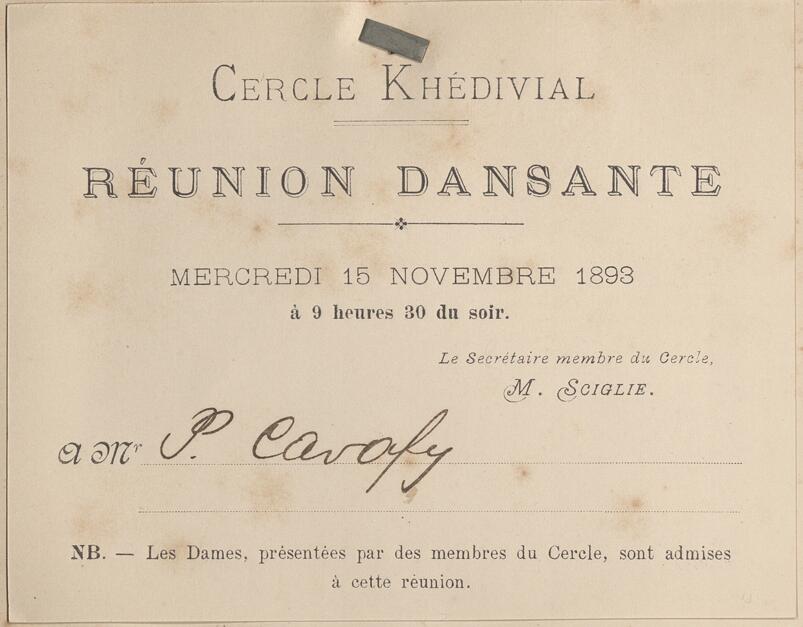 CERCLE KHÉDIVIAL
RÉUNION DANSANTE
MERCREDI 15 NOVEMBRE 1893
à 9 heures 30 du soir.
Le Secrétaire membre du Cercle,
M. SCIGLIE.
A Mr P. Cavafy
NB. — Les Dames, présentées par des membres du Cercle, sont admises
à cette réunion.